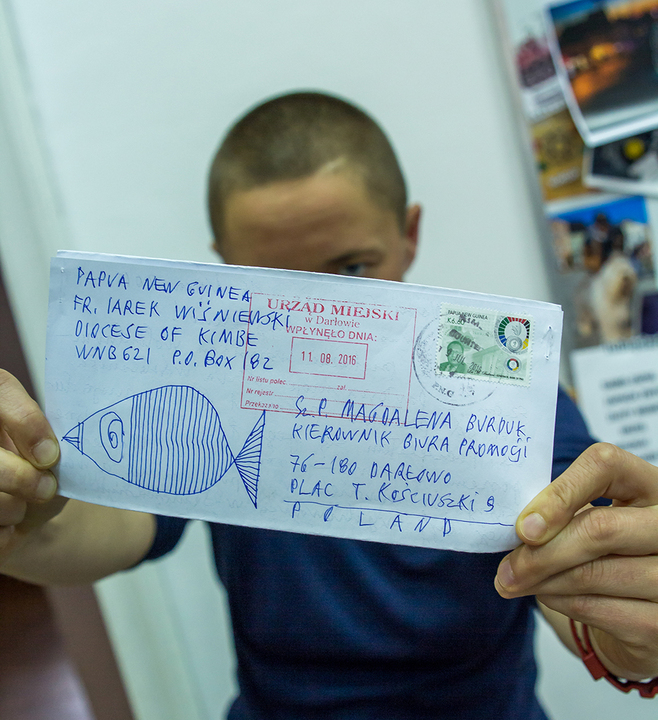 PAPUA NEW GUINEA
FR. IAREK WIŚNIEWSKI
DIOCESE OF KIMBE
WNB621 P.O. BOX 182
URZĄD MIEJSKI
w Darłowie
WPŁYNĘŁO DNIA:
11. 08. 2016
Nr listu polec. zał.
Nr rejestr.
Przekazano
PAPUA NEW GUINEA
Sz. P. MAGDALENA BURDUK
KIEROWNIK BIURA PROMOCJI
76-180 DARŁOWO
PLAC T. KOŚCIUSZKI 9
POLAND